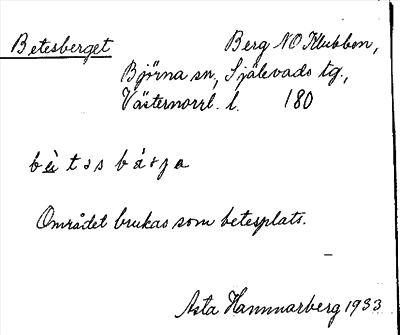 Betesberget Berg NO Klubben,
Björna sn, Själevads tg.,
Västernorrl. l. 180
Området brukas som betesplats.
Asta Hammarberg 1933